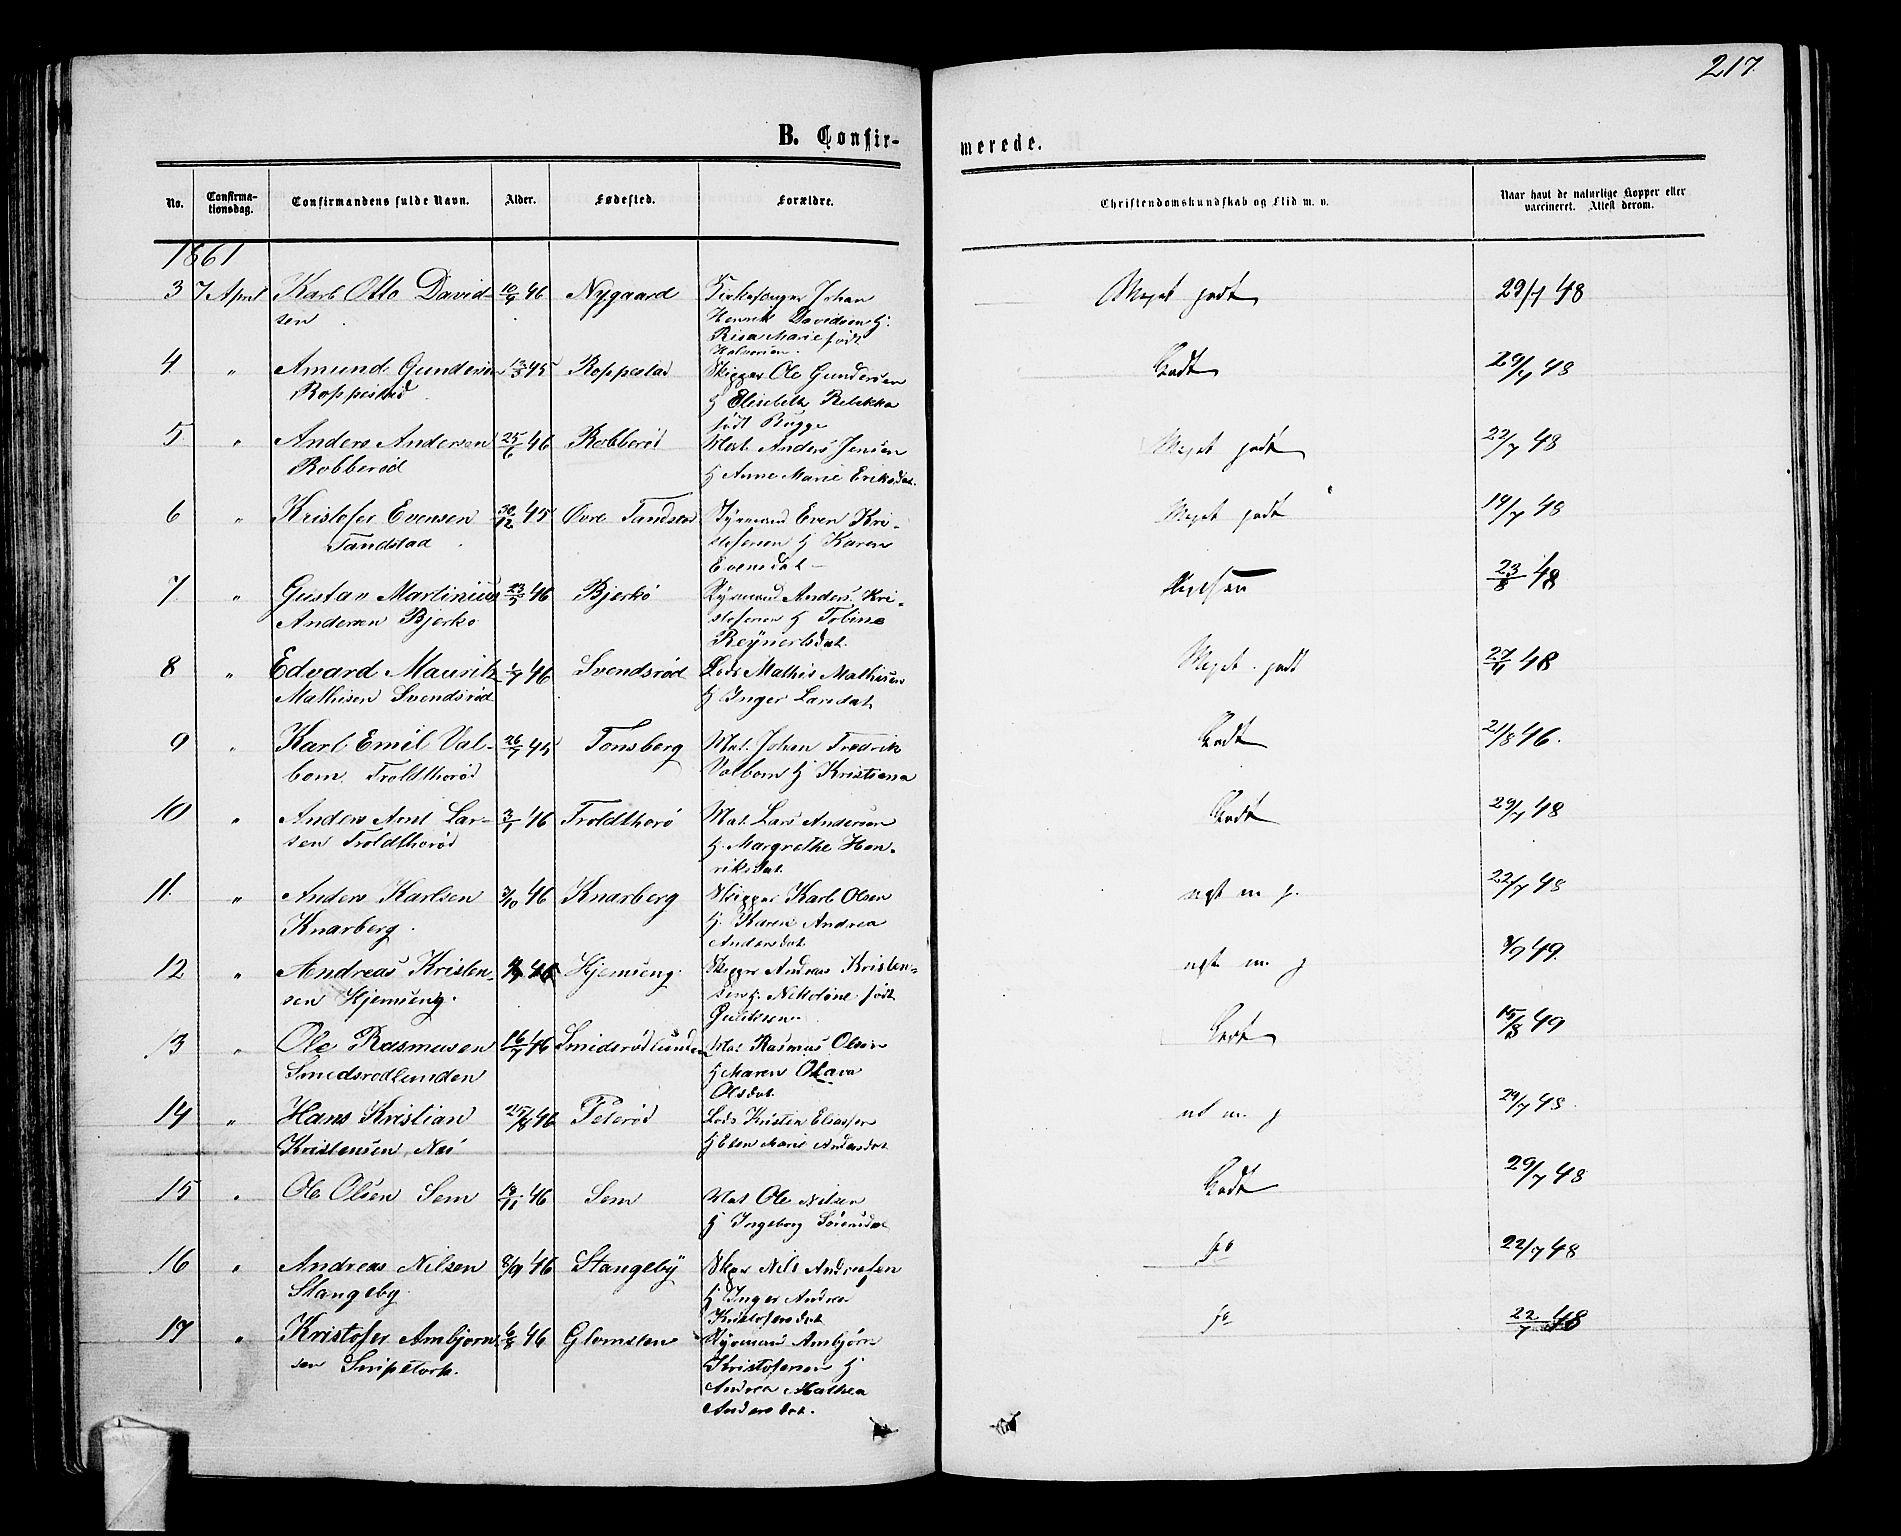 217.
B. Confirmerede.
No. Confirmationsdag. Confirmandens fulde Navn. Alder. Fødested. Forældre. Christendomskundskab og Flid m. v. Naar havt de naturlige Kopper eller vaccineret. Attest derom.
1861
3 7 April Karl Otto David- 10/9 46 Nygaard Kirkesanger Johan Meget godt 29/7 48
sen Henrik Davidsen h:
Risa Marie født
Halvorsen.
4. " Amund Gundersen 45 Roppestad Skipper Ole Gundersen Godt 29/7 48
Roppestad h Elisebeth Rebekka
født Bugge
5 " Anders Andersen 25/6 46 Robberød Mat. Anders Jensen Meget godt 22/7 48
Robberød h Anne Marie Eriksdat.
6 " Kristofer Evensen 30/12 45 Øvre Tandstad Styrmand Even Kri- Meget godt 19/7 48
Tandstad stofersen h Karen
Evensdat
7 " Gustav Martinius 46 Bjerkø Styrmand Anders Kri- 23/8 48
Andersen Bjerkø stofersen h Tobine
Reynertsdat.
8 " Edvard Mauritz 1/7 46 Svendsrød Lods Mathis Mathisen Meget godt 48
Mathisen Svendsrød h Inger Larsdat.
9 " Karl Emil Val- 26/7 45 Tonsberg Mat. Johan Fredrik Godt 21/8 46.
bom. Troldthorød Valbom h Kristiana
10 " Anders Arnt Lar- 3/7 46 Troldthorø Mat. Lars Andersen Godt 29/7 48
sen Troldthorød h. Margrethe Hen-
riksdat.
11. " Anders Karlsen 3/10 46 Knarberg Skipper Karl Olsen ngt m g. 22/7 48
Knarberg. h. Karen Andrea
Andersdat
12 " Andreas Kristen- 46 Hjemseng. Skipper Andreas Kristen- ngt m. g 49.
sen Hjemseng. sen h. Nikoline født
13 " Ole Rasmusen 16/7 46 Smidsrødlunden Mat Rasmus Olsen Godt 15/8 49
Smedsrodlunden h Maren Olava
Olsdat.
14 " Hans Kristian 46 Peterød Lods Kristen Eliassen nt m g 29/7 48.
Kristensen Nes h Elen Marie Andersdat
15 " Ole Olsen Sem 46 Sem Mat Ole Nilsen Godt 29/7 48
h Ingeborg Sørensdat
16 " Andreas Nilsen 8/9 46 Stangeby Skpr Nils Andreasen do 22/7 48
Stangeby. h Inger Andrea
Kristofersdat
17 " Kristofer Ambjorn- 6/8 46 Glomsten Styrmand Ambjørn do 22/7 48
sen Kristofersen h
Andrea Mathea
Andersdat.